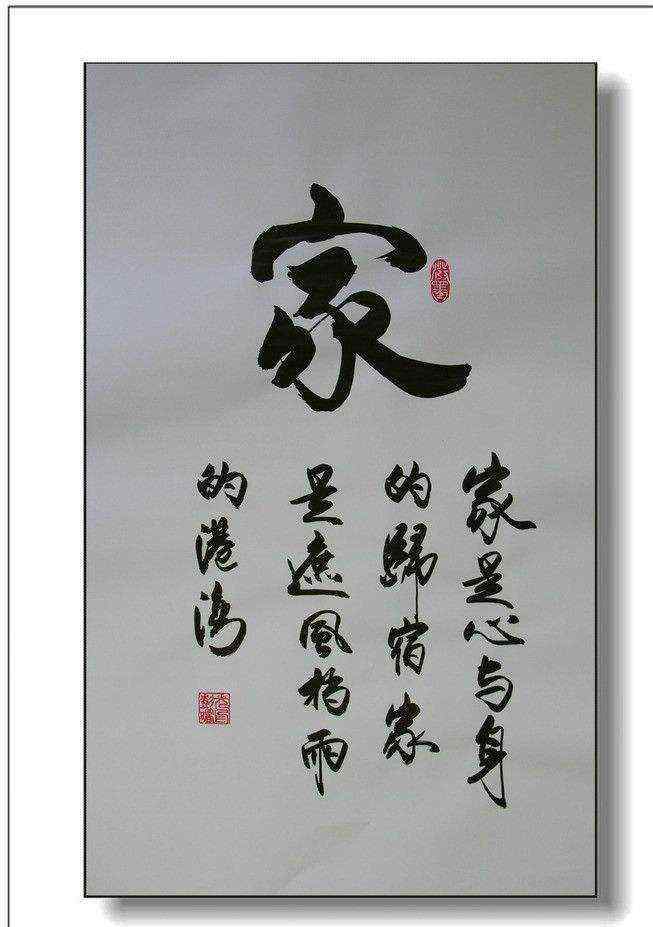 家
家是心与身
的歸宿家
是遮風档雨
的港湾